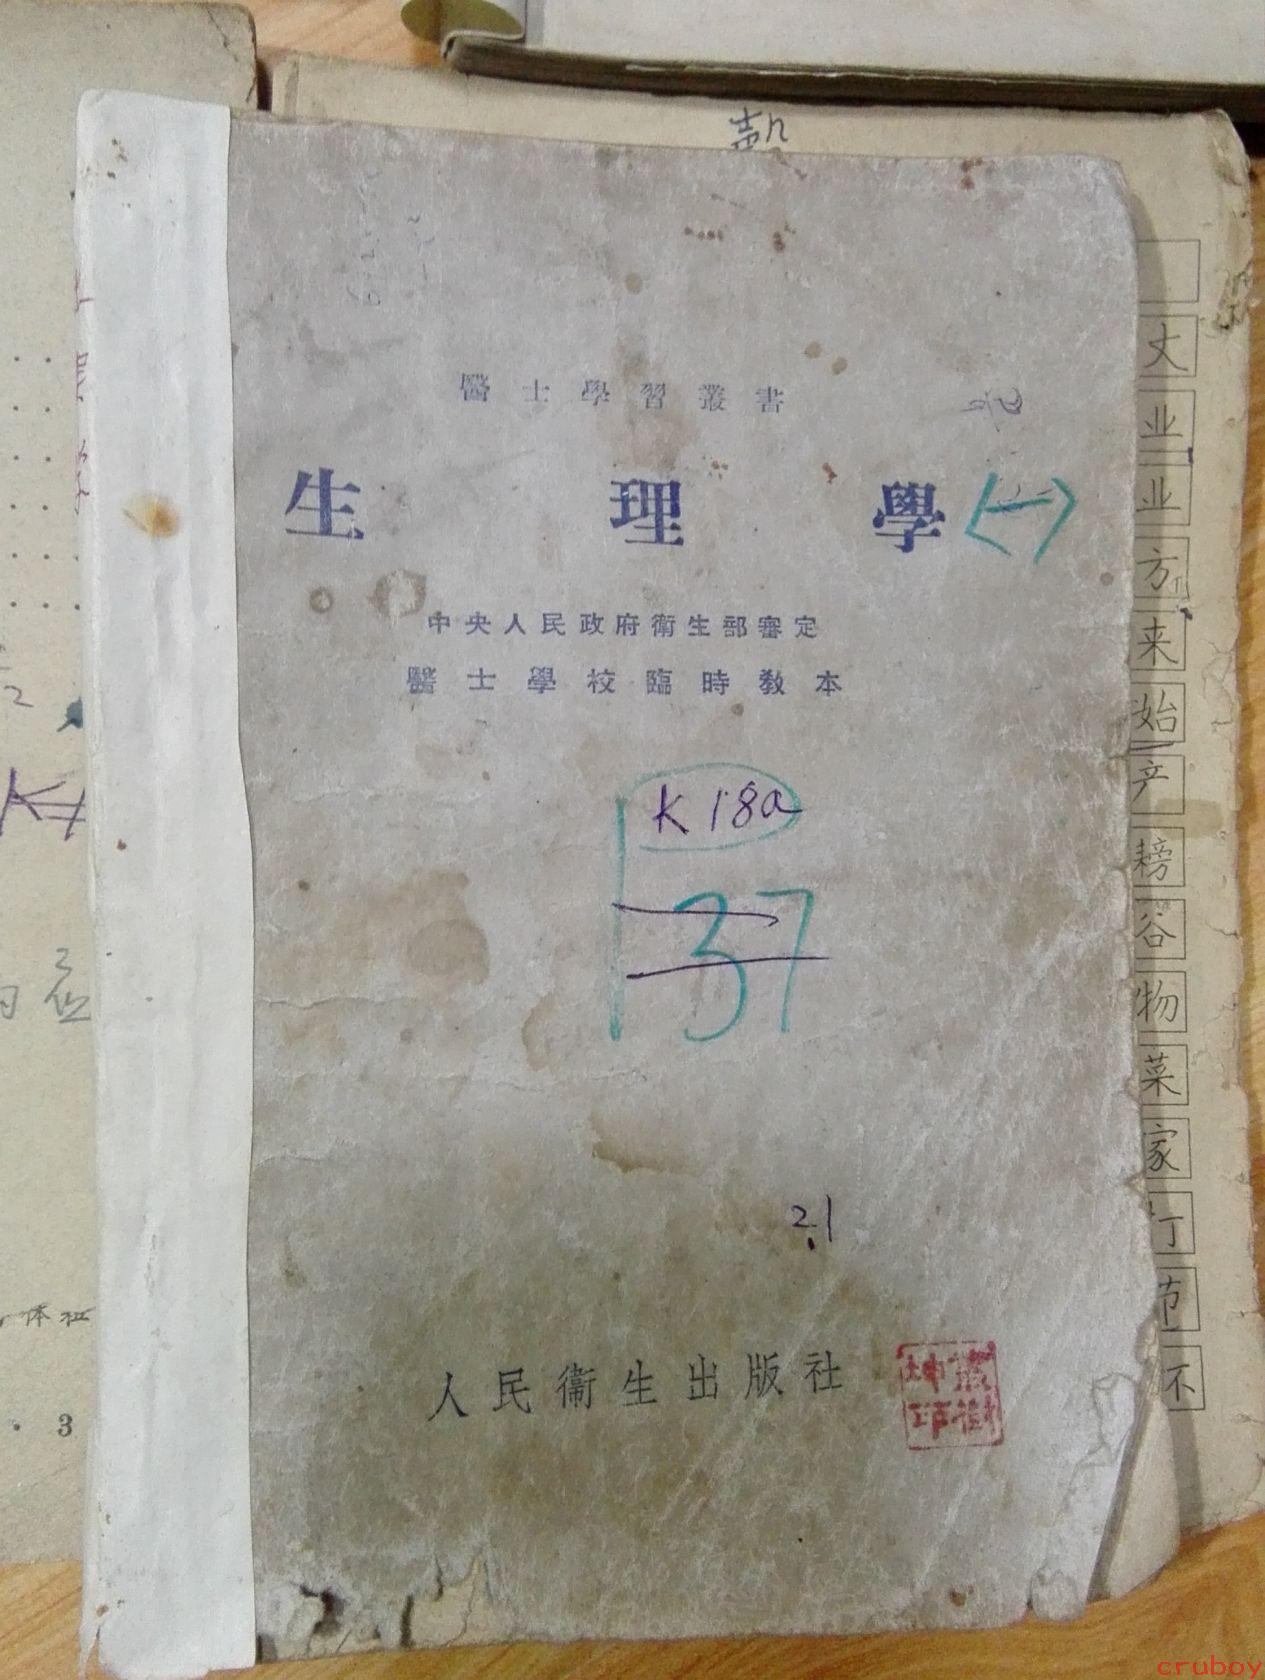 醫士學習叢書
生理學(一)
中央人民政府衛生部審定
醫士學校臨時教本
K 18a
37
21
人民衞生出版社
丈
业
业
方
来
始
产
耪
谷
物
菜
家
丁
范
不
3
cruboy